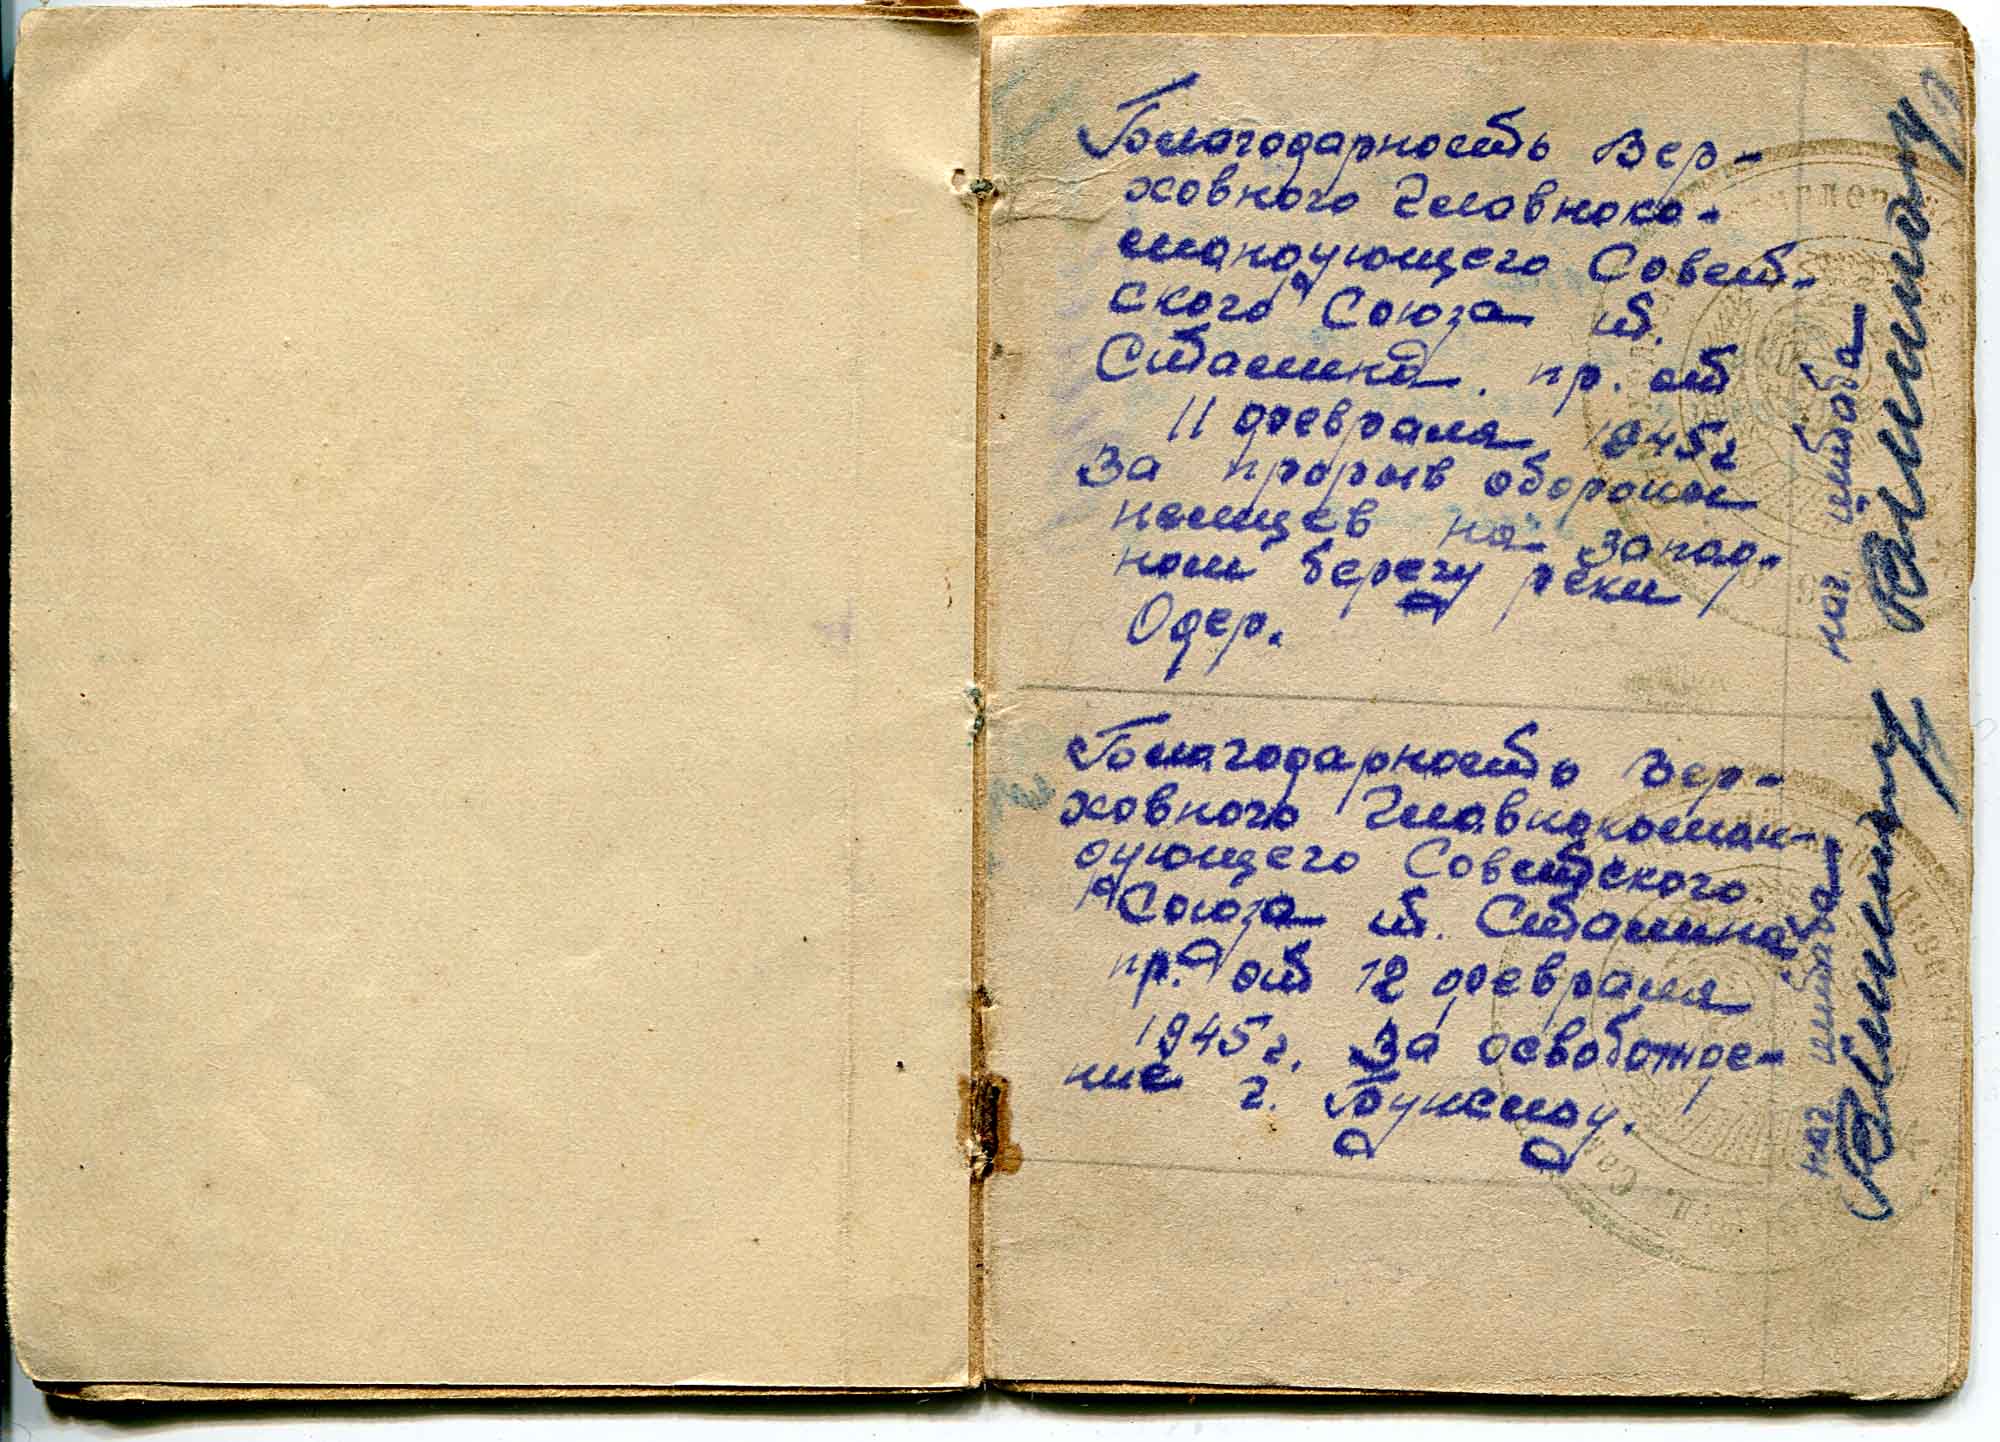 Благодарность Вер-
ховного Главноко-
мандующего Совет-
ского Союза т.
Сталина. пр. от
11 февраля 1945г
За прорыв обороны
немцев на запад-
ном берегу реки
Одер.
Благодарность Вер-
ховного Главнокоман-
дующего Советского
Союза т. Сталина
пр. от 12 февраля
1945г. За освобожде-
ние г. Бунслау.
нач. штаба
нач. штаба